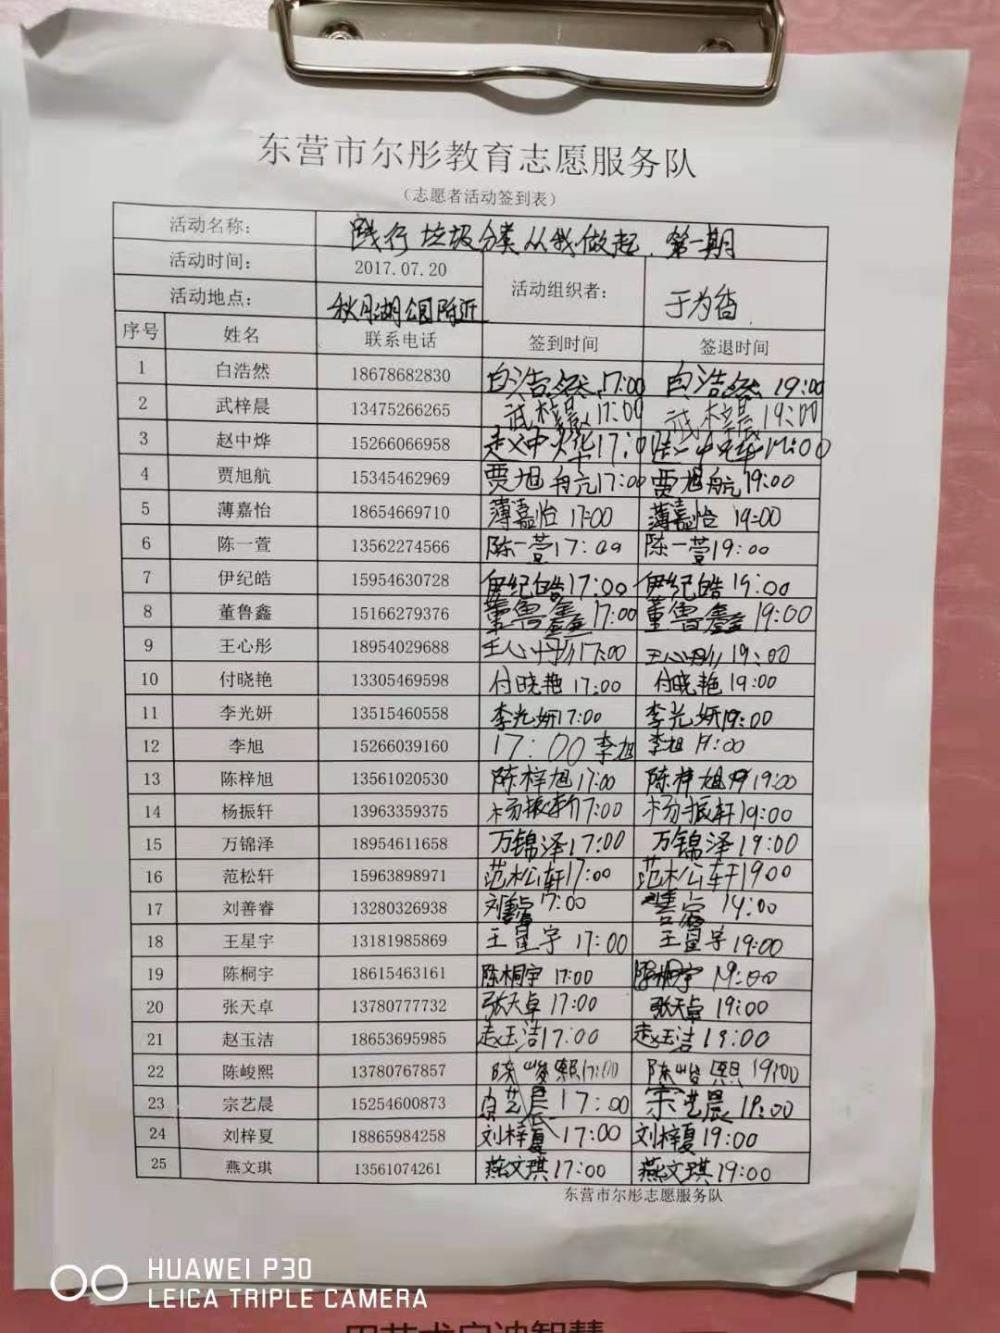 东营市尔彤教育志愿服务队
（志愿者活动签到表）
活动名称： 践行垃圾分类从我做起.第一期
活动时间： 2017.07.20 活动组织者： 于为香
活动地点： 秋月湖公园附近
序号 姓名 联系电话 签到时间 签退时间
1 白浩然 18678682830 白浩然 17:00 白浩然 19:00
2 武梓晨 13475266265 武梓晨 17:00 武梓晨 19:00
3 赵中烨 15266066958 赵中烨 17:00
4 贾旭航 15345462969 贾旭航 17:00 贾旭航 19:00
5 薄嘉怡 18654669710 薄嘉怡 17:00 薄嘉怡 19:00
6 陈一萱 13562274566 陈一萱 17:00 陈一萱 19:00
7 伊纪皓 15954630728 伊纪皓 17:00 伊纪皓 19:00
8 董鲁鑫 15166279376 董鲁鑫 17:00 董鲁鑫 19:00
9 王心彤 18954029688 王心彤 17:00 王心彤 19:00
10 付晓艳 13305469598 付晓艳 17:00 付晓艳 19:00
11 李光妍 13515460558 李光妍 17:00 李光妍 19:00
12 李旭 15266039160 17:00 李旭 李旭 19:00
13 陈梓旭 13561020530 陈梓旭 17:00 陈梓旭 19:00
14 杨振轩 13963359375 杨振轩 17:00 杨振轩 19:00
15 万锦泽 18954611658 万锦泽 17:00 万锦泽 19:00
16 范松轩 15963898971 范松轩 17:00 范松轩 1900
17 刘善睿 13280326938 刘善睿 17:00 19:00
18 王星宇 13181985869 王星宇 17:00 王星宇 19:00
19 陈桐宇 18615463161 陈桐宇 17:00 陈桐宇 19:00
20 张天卓 13780777732 张天卓 17:00 张天卓 19:00
21 赵玉洁 18653695985 赵玉洁 17:00 赵玉洁 19:00
22 陈峻熙 13780767857 陈峻熙 17:00 陈峻熙 19:00
23 宗艺晨 15254600873 宗艺晨 17:00 宗艺晨 19:00
24 刘梓夏 18865984258 刘梓夏 17:00 刘梓夏 19:00
25 燕文琪 13561074261 燕文琪 17:00 燕文琪 19:00
东营市尔彤志愿服务队
HUAWEI P30
LEICA TRIPLE CAMERA